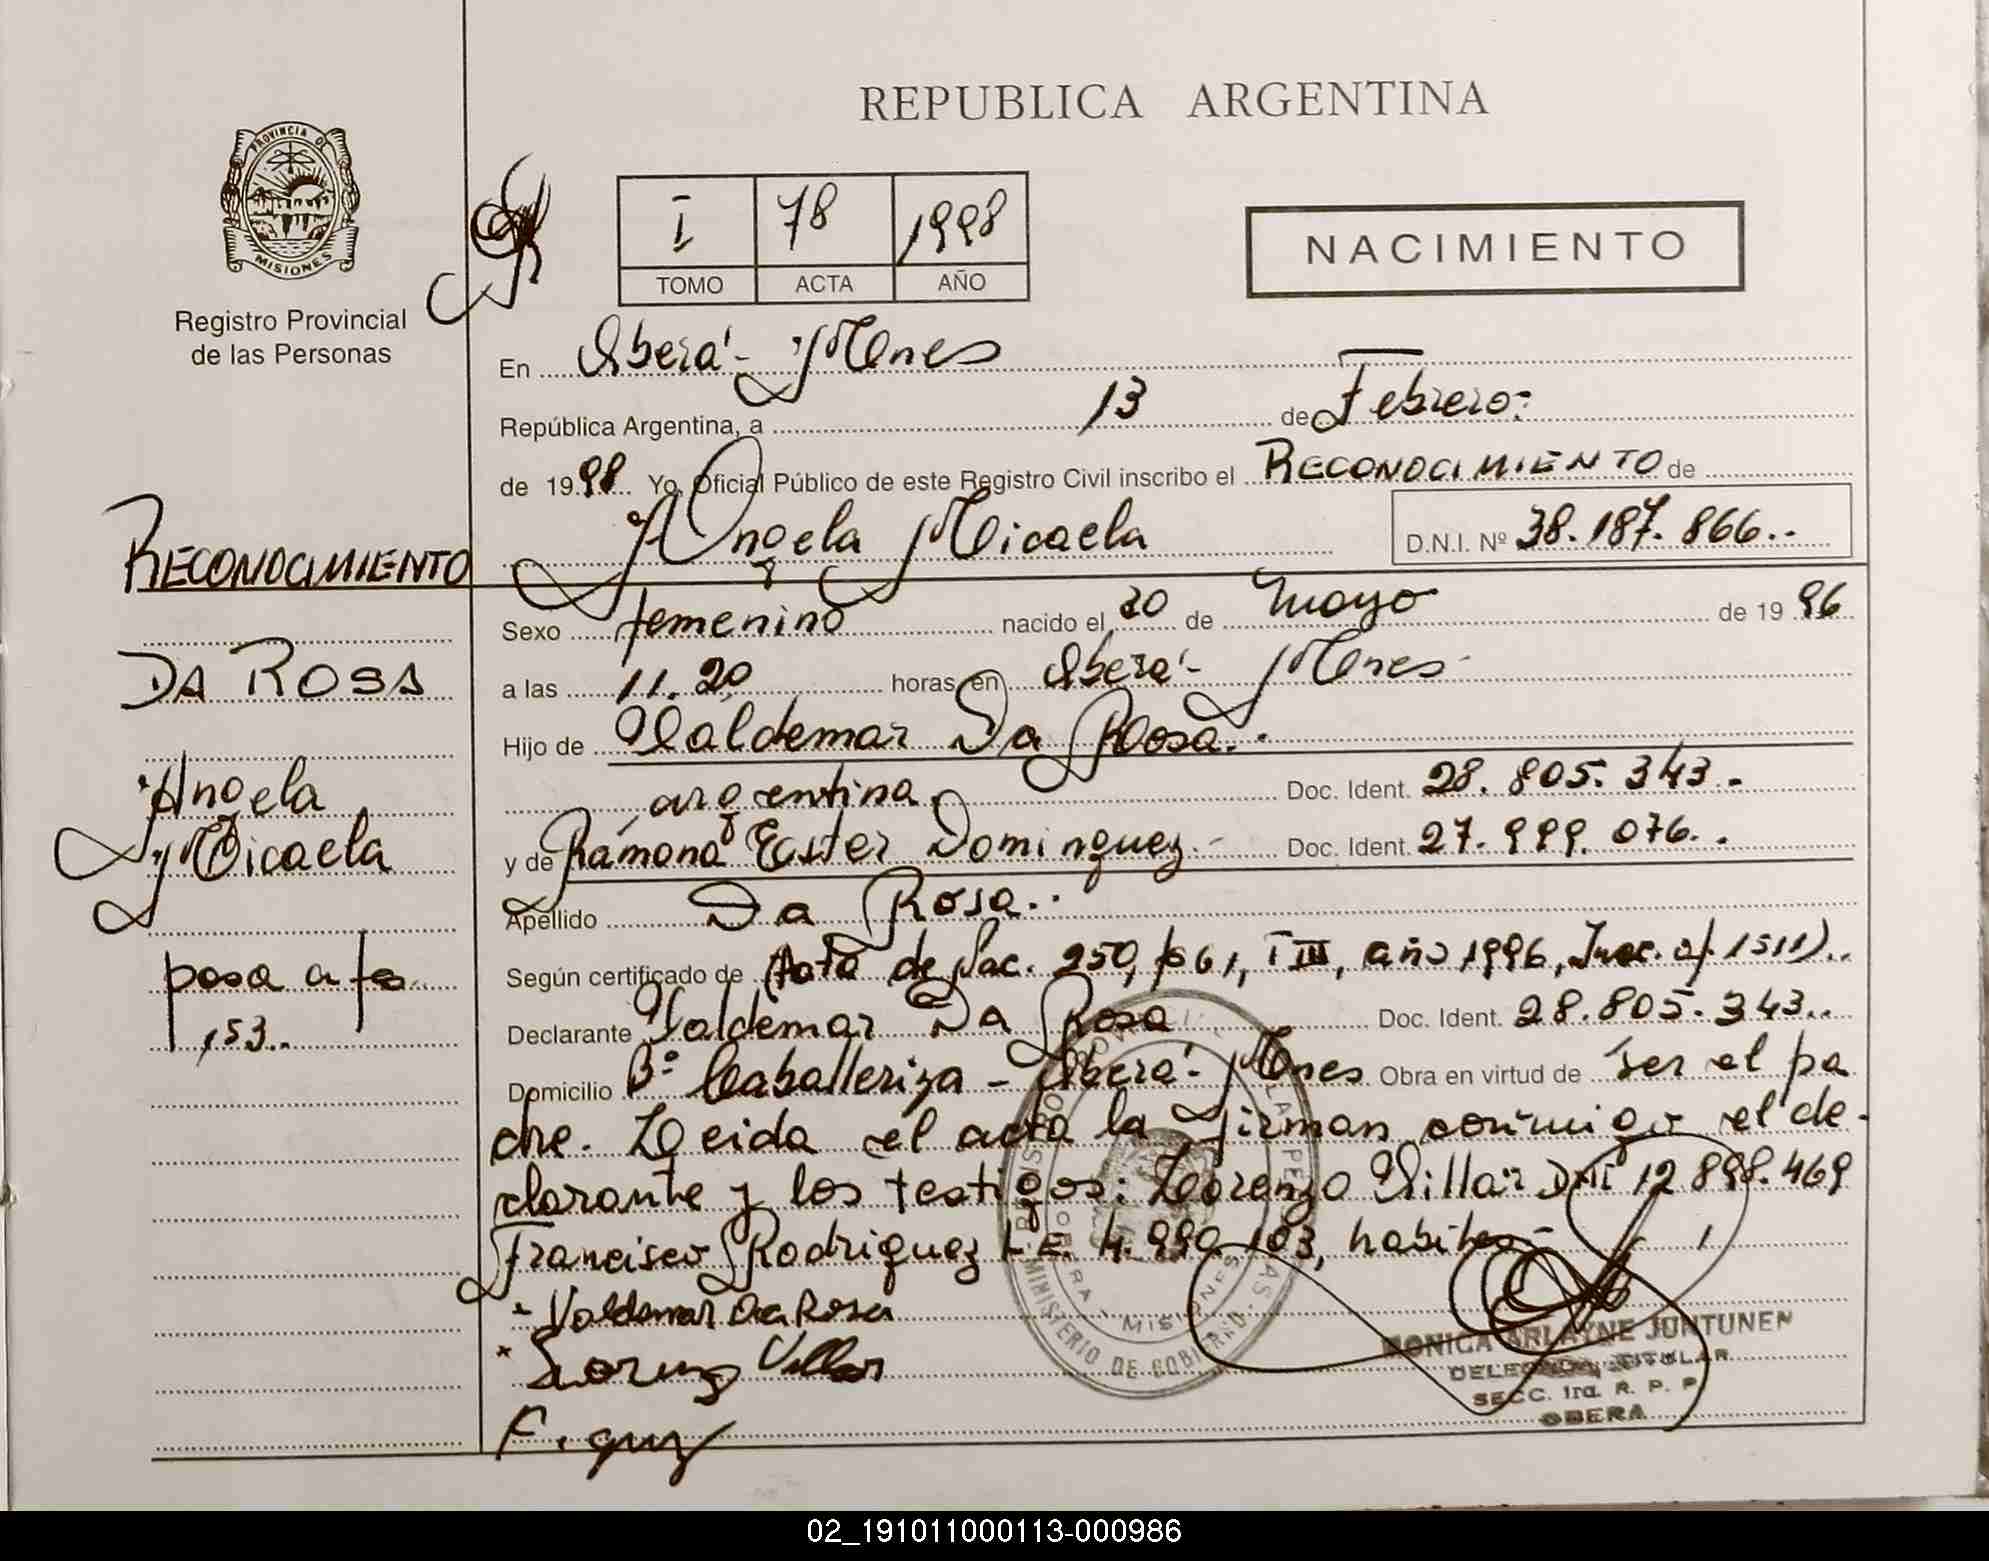 REPUBLICA ARGENTINA
PROVINCIA DE
MISIONES
Registro Provincial
de las Personas
I 78 1998
TOMO ACTA AÑO
NACIMIENTO
En Oberá - Mnes
República Argentina, a 13 de Febrero
de 1998 Yo, Oficial Público de este Registro Civil inscribo el RECONOCIMIENTO de
Angela Micaela D.N.I. Nº 38.187.866..
Sexo femenino nacido el 20 de mayo de 1996
a las 11.20 horas en Oberá - Mnes
Hijo de Valdemar Da Rosa..
argentina Doc. Ident. 28.805.343..
y de Ramona Ester Dominguez Doc. Ident. 27.999.076..
Apellido Da Rosa..
Según certificado de Acta de Nac. 250, fº 61, T III, año 1996, Inoc. a/. 1511)..
Declarante Valdemar Da Rosa Doc. Ident. 28.805.343..
Domicilio Bº Caballeriza - Oberá - Mnes Obra en virtud de ser el pa
dre. Leida el acta la firman conmigo el de-
clarante y los testigos: Lorenzo Villar DNI 12 898.469
Francisco Rodriguez L.E. 4.990.103, habiles-
Valdemar Da Rosa
Lorenzo Villar
RECONOCIMIENTO
DA ROSA
Angela
Micaela
pasa a fs
153..
MINISTERIO DE GOBIERNO
OBERA - MISIONES
MONICA ARLAYNE JUNTUNEN
DELEGADA TITULAR
SECC. 1ra. R. P. P.
OBERA
02_191011000113-000986